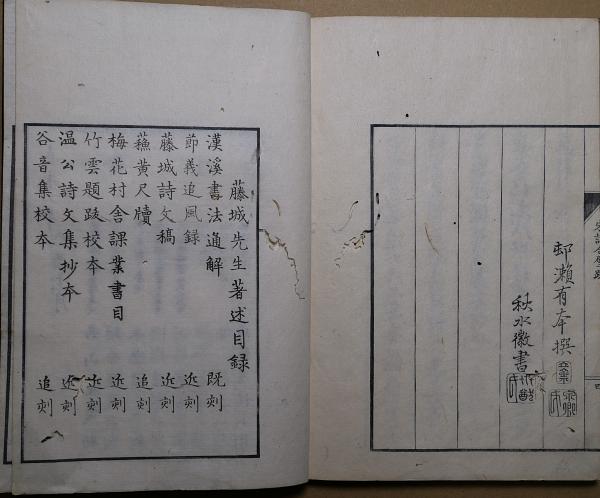 邨瀬有本撰
秋水徽書
藤城先生著述目録
漢溪書法通解 既刻
節義追風録 近刻
藤城詩文稿 近刻
蘓黄尺牘 追刻
梅花村舍課業書目 近刻
竹雲題跋校本 近刻
温公詩文集抄本 近刻
谷音集校本 追刻